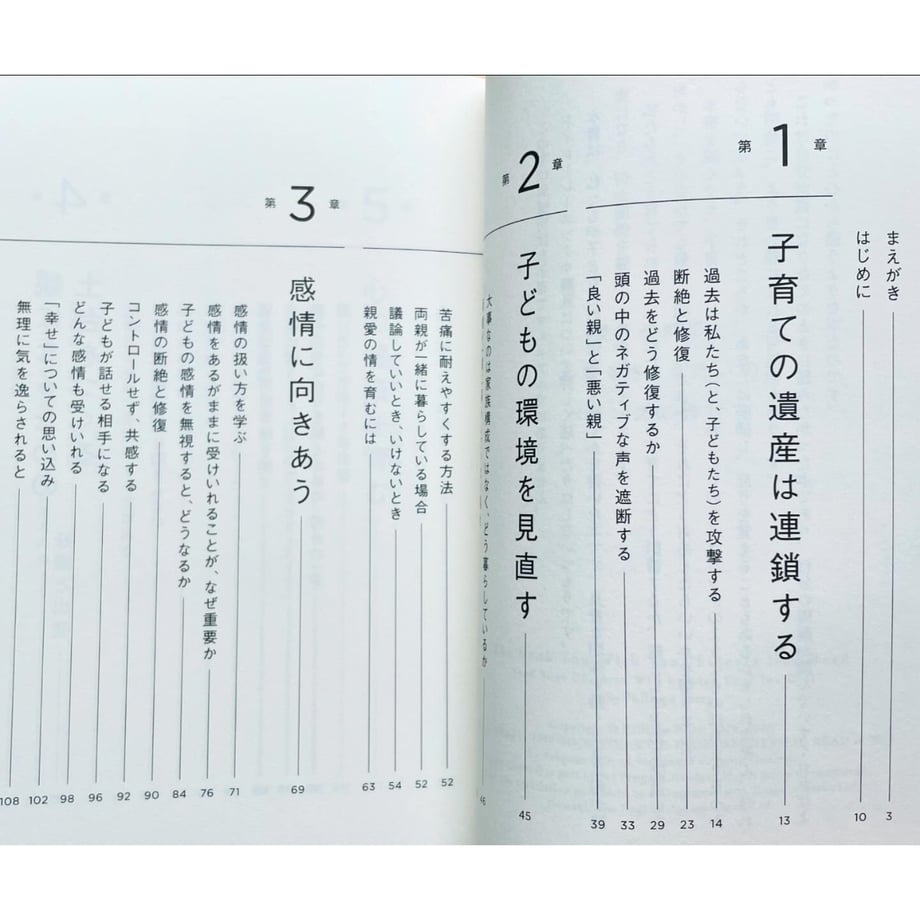 まえがき 3
はじめに 10
第1章
子育ての遺産は連鎖する 13
過去は私たち(と、子どもたち)を攻撃する 14
断絶と修復 23
過去をどう修復するか 29
頭の中のネガティブな声を遮断する 33
「良い親」と「悪い親」 39
第2章
子どもの環境を見直す 45
大事なのは家族構成ではなく、どう暮らしているか 46
苦痛に耐えやすくする方法 52
両親が一緒に暮らしている場合 52
議論していいとき、いけないとき 54
親愛の情を育むには 63
第3章
感情に向きあう 69
感情の扱い方を学ぶ 71
感情をあるがままに受けいれることが、なぜ重要か 76
子どもの感情を無視すると、どうなるか 84
感情の断絶と修復 90
コントロールせず、共感する 92
子どもが話せる相手になる 96
どんな感情も受けいれる 98
「幸せ」についての思い込み 102
無理に気を逸らされると 108